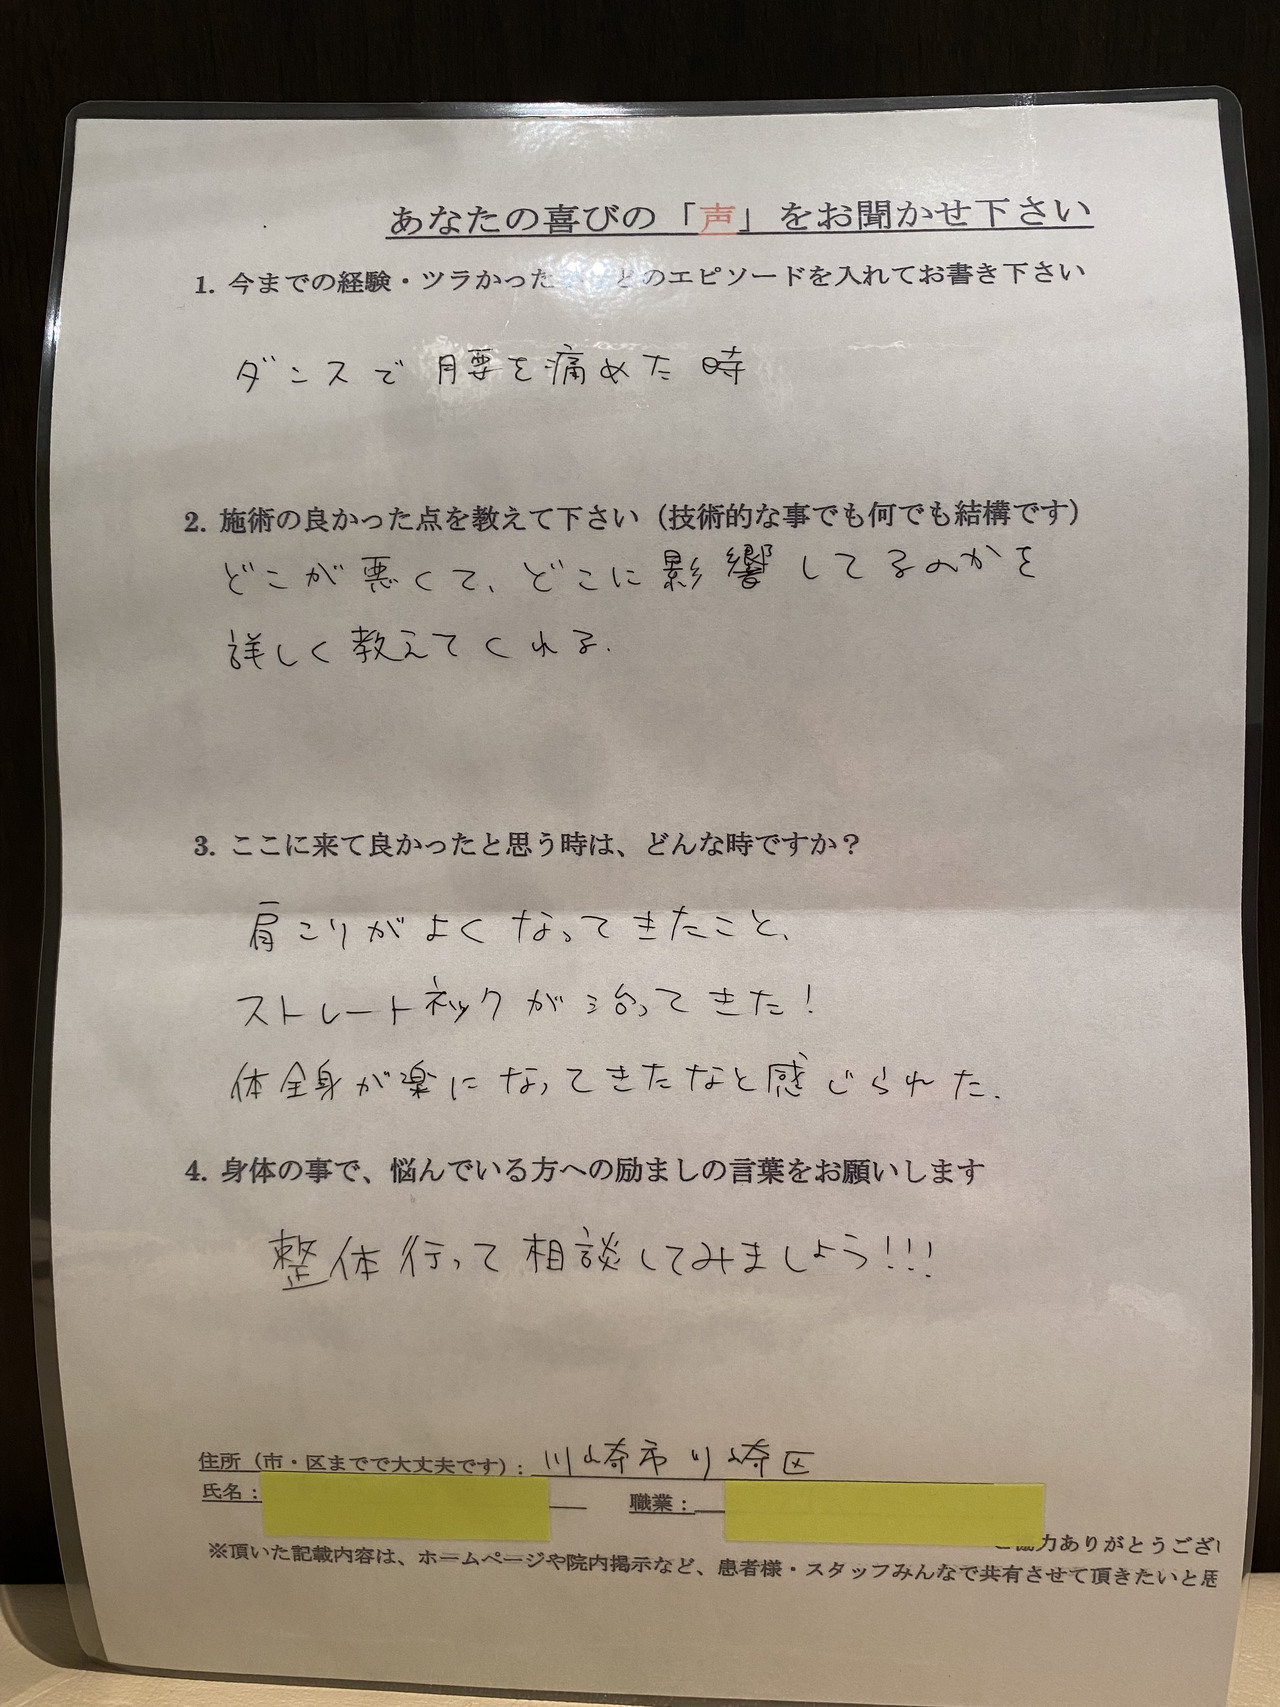 あなたの喜びの「声」をお聞かせ下さい
1. 今までの経験・ツラかった どのエピソードを入れてお書き下さい
ダンスで腰を痛めた時
2. 施術の良かった点を教えて下さい（技術的な事でも何でも結構です）
どこが悪くて、どこに影響してるのかを
詳しく教えてくれる.
3. ここに来て良かったと思う時は、どんな時ですか？
肩こりがよくなってきたこと、
ストレートネックが治ってきた!
体全身が楽になってきたなと感じられた.
4. 身体の事で、悩んでいる方への励ましの言葉をお願いします
整体行って相談してみましょう!!!
住所（市・区までで大丈夫です）: 川崎市川崎区
氏名： 職業：
ご協力ありがとうござい
※頂いた記載内容は、ホームページや院内掲示など、患者様・スタッフみんなで共有させて頂きたいと